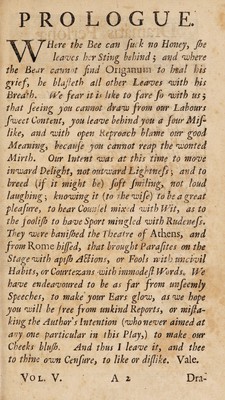 PROLOGUE.
WHere the Bee can suck no Honey, she
leaves her Sting behind; and where
the Bear cannot find Origanum to heal his
grief, he blasteth all other Leaves with his
Breath. We fear it is like to fare so with us;
that seeing you cannot draw from our Labours
sweet Content, you leave behind you a sour Mis-
like, and with open Reproach blame our good
Meaning, because you cannot reap the wonted
Mirth. Our Intent was at this time to move
inward Delight, not outward Lightness; and to
breed (if it might be) soft smiling, not loud
laughing; knowing it (to the wise) to be a great
pleasure, to hear Counsel mixed with Wit, as to
the foolish to have Sport mingled with Rudeness.
They were banished the Theatre of Athens, and
from Rome hissed, that brought Parasites on the
Stage with apish Actions, or Fools with uncivil
Habits, or Courtezans with immodest Words. We
have endeavoured to be as far from unseemly
Speeches, to make your Ears glow, as we hope
you will be free from unkind Reports, or mista-
king the Author's Intention (who never aimed at
any one particular in this Play,) to make our
Cheeks blush. And thus I leave it, and thee
to thine own Censure, to like or dislike. Vale.
VOL. V. A 2 Dra-